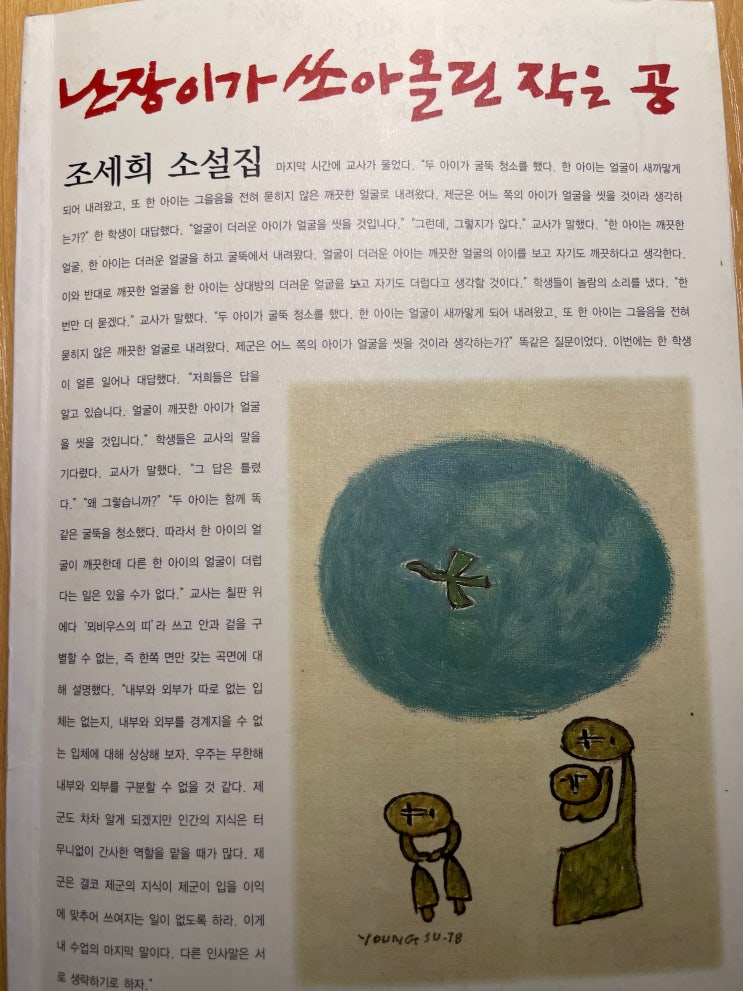 난장이가 쏘아올린 작은 공
조세희 소설집
마지막 시간에 교사가 물었다. “두 아이가 굴뚝 청소를 했다. 한 아이는 얼굴이 새까맣게
되어 내려왔고, 또 한 아이는 그을음을 전혀 묻히지 않은 깨끗한 얼굴로 내려왔다. 제군은 어느 쪽의 아이가 얼굴을 씻을 것이라 생각하
는가?” 한 학생이 대답했다. “얼굴이 더러운 아이가 얼굴을 씻을 것입니다.” “그런데, 그렇지가 않다.” 교사가 말했다. “한 아이는 깨끗한
얼굴, 한 아이는 더러운 얼굴을 하고 굴뚝에서 내려왔다. 얼굴이 더러운 아이는 깨끗한 얼굴의 아이를 보고 자기도 깨끗하다고 생각한다.
이와 반대로 깨끗한 얼굴을 한 아이는 상대방의 더러운 얼굴을 보고 자기도 더럽다고 생각할 것이다.” 학생들이 놀람의 소리를 냈다. “한
번만 더 묻겠다.” 교사가 말했다. “두 아이가 굴뚝 청소를 했다. 한 아이는 얼굴이 새까맣게 되어 내려왔고, 또 한 아이는 그을음을 전혀
묻히지 않은 깨끗한 얼굴로 내려왔다. 제군은 어느 쪽의 아이가 얼굴을 씻을 것이라 생각하는가?” 똑같은 질문이었다. 이번에는 한 학생
이 얼른 일어나 대답했다. “저희들은 답을
알고 있습니다. 얼굴이 깨끗한 아이가 얼굴
을 씻을 것입니다.” 학생들은 교사의 말을
기다렸다. 교사가 말했다. “그 답은 틀렸
다.” “왜 그렇습니까?” “두 아이는 함께 똑
같은 굴뚝을 청소했다. 따라서 한 아이의 얼
굴이 깨끗한데 다른 한 아이의 얼굴이 더럽
다는 일은 있을 수가 없다.” 교사는 칠판 위
에다 ‘뫼비우스의 띠’라 쓰고 안과 겉을 구
별할 수 없는, 즉 한쪽 면만 갖는 곡면에 대
해 설명했다. “내부와 외부가 따로 없는 입
체는 없는지, 내부와 외부를 경계지을 수 없
는 입체에 대해 상상해 보자. 우주는 무한해
내부와 외부를 구분할 수 없을 것 같다. 제
군도 차차 알게 되겠지만 인간의 지식은 터
무니없이 간사한 역할을 맡을 때가 많다. 제
군은 결코 제군의 지식이 제군이 입을 이익
에 맞추어 쓰여지는 일이 없도록 하라. 이게
내 수업의 마지막 말이다. 다른 인사말은 서
로 생략하기로 하자.”
YOUNG SU.78